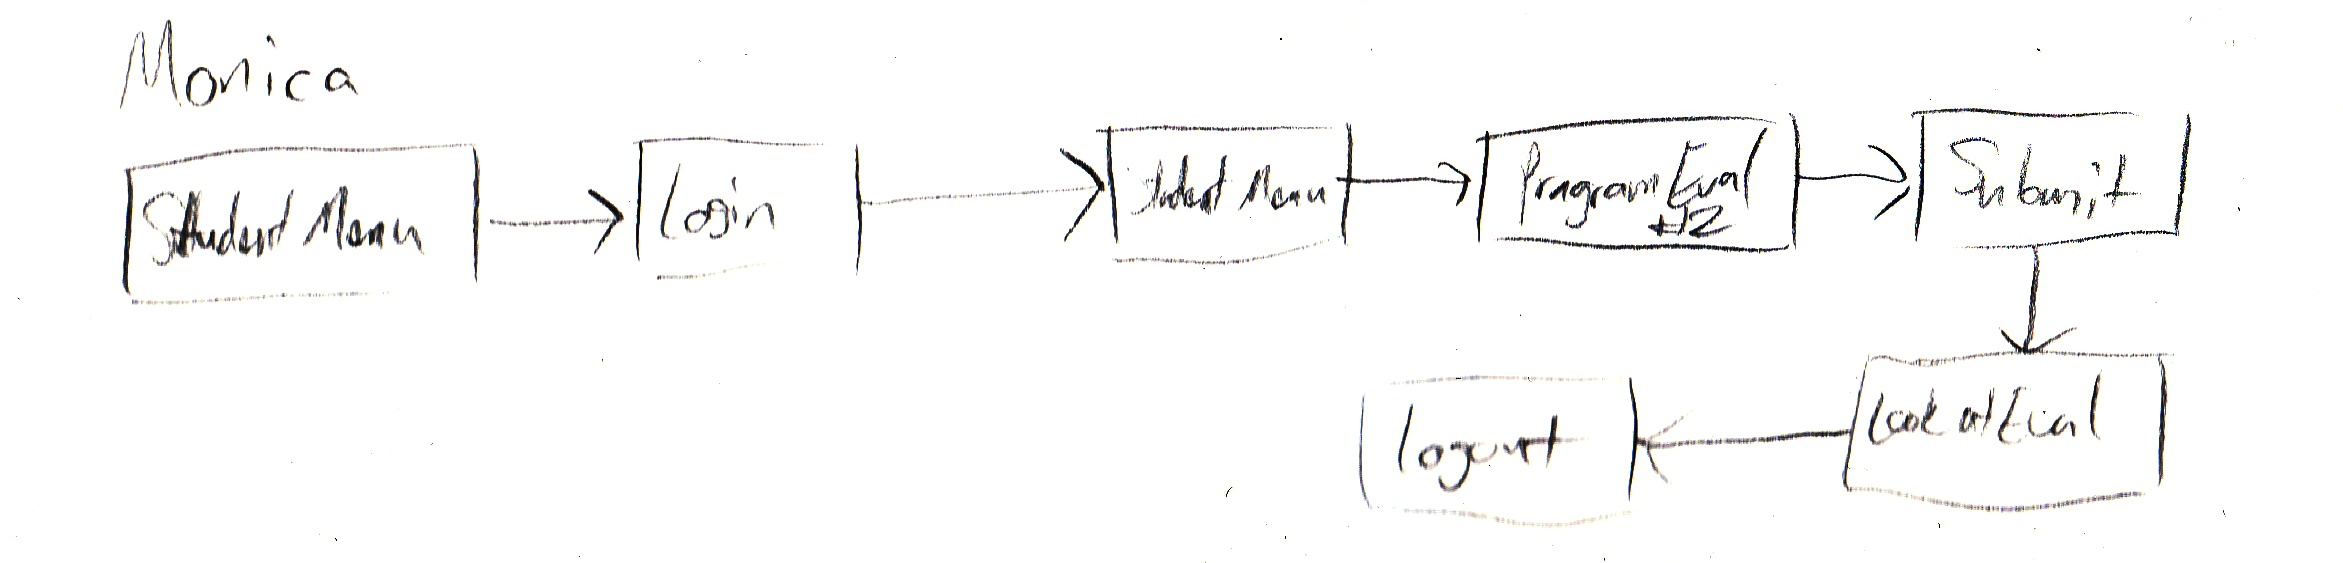 Monica
Student Menu
Login
Student Menu
Program Eval
#2
Submit
Look at Eval
Logout